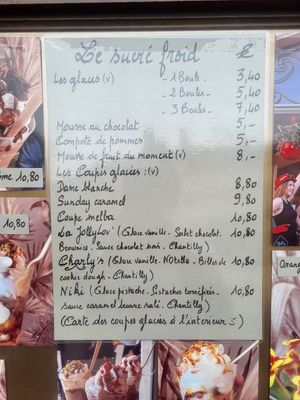 Le sucré froid €
Les glaces (v) - 1 Boule - 3,40
- 2 Boules - 5,40
- 3 Boules - 7,40
Mousse au chocolat 5,-
Compote de pommes 5,-
Mousse de fruit du moment (v) 8,-
Les Coupes glacées : (v)
Dame Blanche 8,80
Sunday caramel 9,80
Coupe melba 10,80
La Jolly Lov' (Glace vanille - Sablet chocolat 10.80
Brownie - Sauce chocolat noir - Chantilly)
Charly's (Glace vanille - Nutella - Billes de 10,80
cookie dough - Chantilly)
Niki (Glace pistache - Pistaches torréfiées - 10,80
sauce caramel beurre salé - Chantilly)
(Carte des coupes glacées à l'intérieur :)
10,80
10,80
Orang